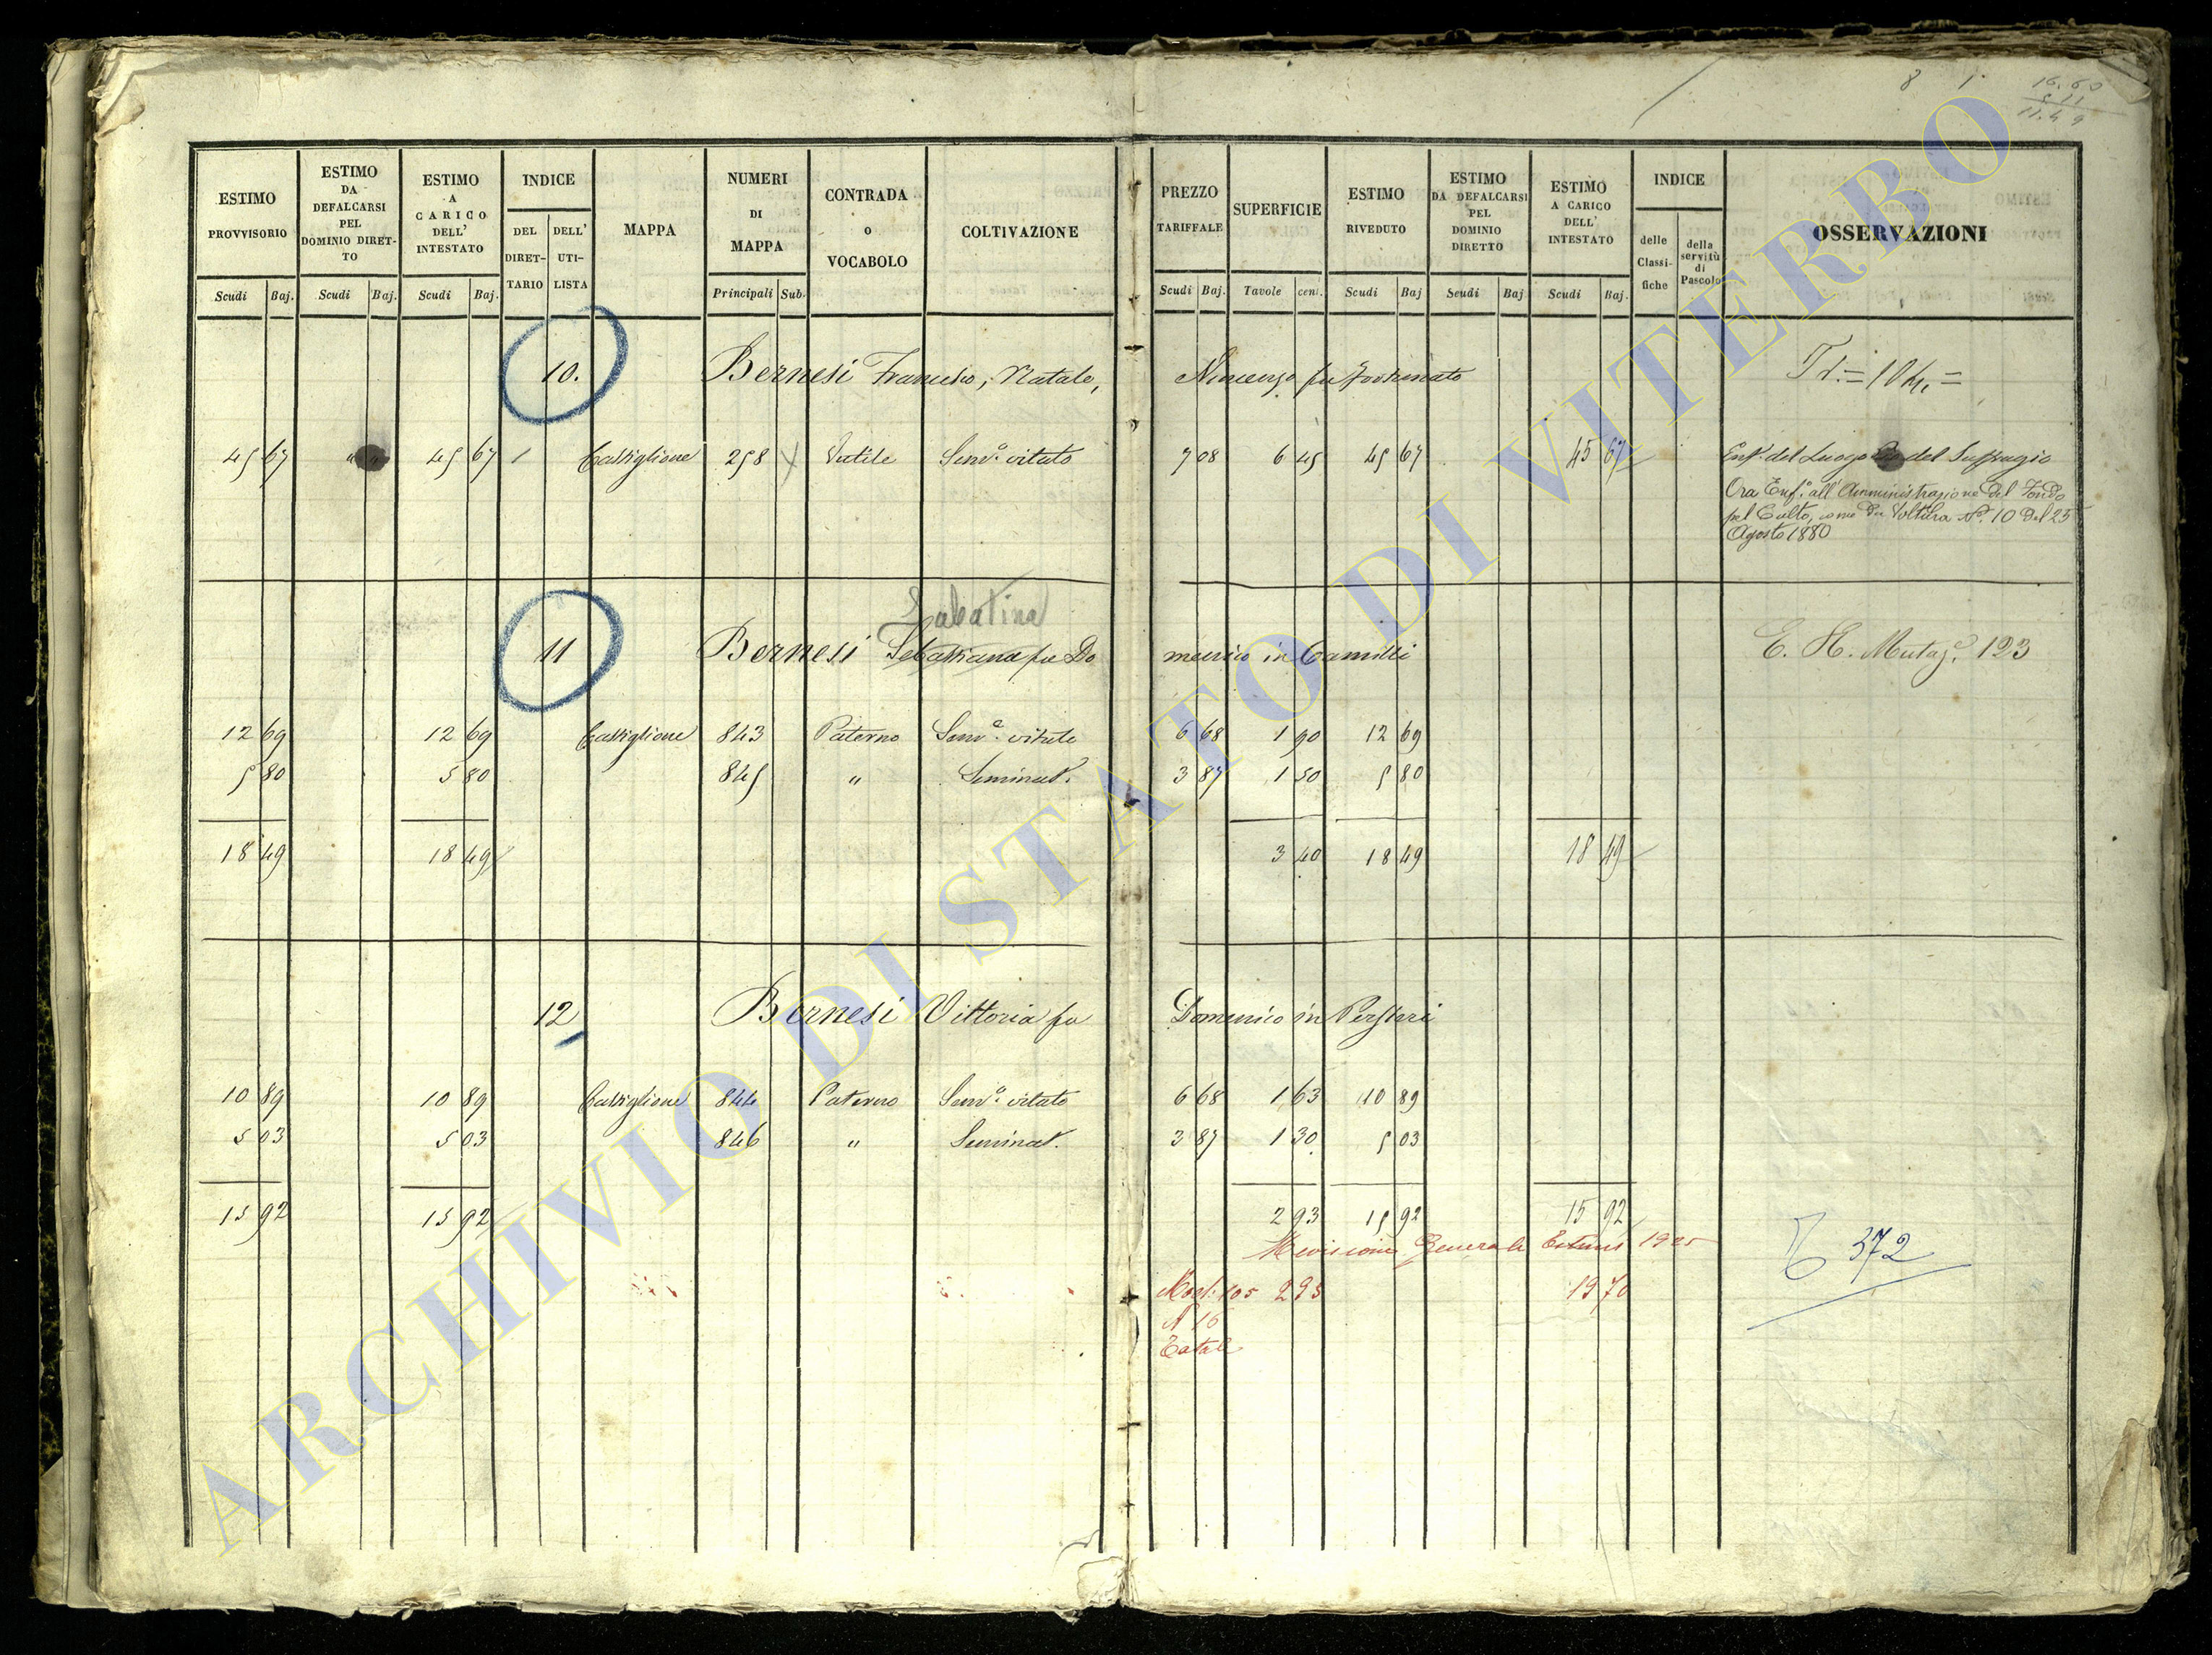 8 1
16.60
5 11
11.49
ESTIMO PROVVISORIO
ESTIMO DA DEFALCARSI PEL DOMINIO DIRET-TO
ESTIMO A CARICO DELL' INTESTATO
INDICE
DEL DIRET-TARIO
DELL' UTI-LISTA
MAPPA
NUMERI DI MAPPA
CONTRADA o VOCABOLO
COLTIVAZIONE
PREZZO TARIFFALE
SUPERFICIE
ESTIMO RIVEDUTO
ESTIMO DA DEFALCARSI PEL DOMINIO DIRETTO
ESTIMO A CARICO DELL' INTESTATO
INDICE
delle Classi-fiche
della servitù di Pascolo
OSSERVAZIONI
Scudi Baj. Scudi Baj. Scudi Baj. Principali Sub. Scudi Baj. Tavole cent. Scudi Baj Scudi Baj Scudi Baj.
10. Bernesi Francesco, Natale, Vincenzo fu Fortunato
45 67 " " 45 67 1 Castiglione 258 Vatile Sem.o vitato 7 08 6 45 45 67 45 67 Enf.a del Luogo Pio del Suffragio
Ora Enf.a all'Amministrazione del Fondo
pel Culto, come da Voltura N.o 10 del 25
Agosto 1880
Sabatina
11 Bernesi Sebastiana fu Do menico in Camilli E. H. Mutaz.e 123
12 69 12 69 Castiglione 843 Paterno Sem.o vitato 6 68 1 90 12 69
5 80 5 80 845 " Seminat.o 3 87 1 50 5 80
18 49 18 49 3 40 18 49 18 49
12 Bernesi Vittoria fu Domenico in
10 89 10 89 Castiglione 844 Paterno Sem.o vitato 6 68 1 63 10 89
5 03 5 03 846 " Seminat. 3 87 1 30 5 03
15 92 15 92 2 93 15 92 15 92
Revisione Generale Estimi 1925
372
Mod. 105 293 19 70
N 16
Totale
ARCHIVIO DI STATO DI VITERBO